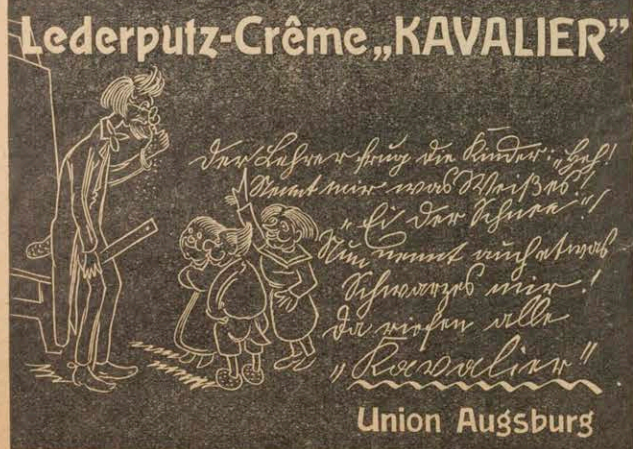 Lederputz-Crême „KAVALIER”
Der Lehrer frug die Kinder: „Heh!
Nennt mir was Weißes!”
„Ei der Schnee”!
Nun nennt auch etwas
Schwarzes mir!
Da riefen alle
„Kavalier”
Union Augsburg